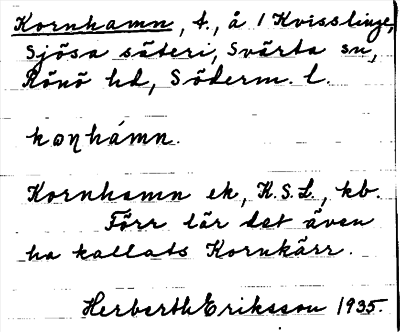 Kornhamn, t., å 1 Kvisslinge,
Sjösa säteri, Svärta sn,
Rönö hd, Söderm. l.
kɷηhámn.
Kornhamn ek, K.S.L., kb.
Förr lär det även
ha kallats Kornkärr.
Herberth Eriksson 1935.